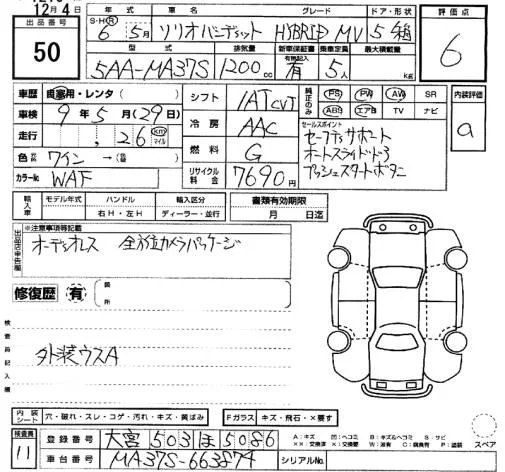 12月4日
出品番号 50
年式 S・H・R 6年5月
車名 ソリオバンディット
グレード HYBRID MV
ドア・形状 5 箱
評価点 6
型式 5AA-MA37S
排気量 1200cc
新車保証書 有無記入 有
乗定員 5人
最大積載量 kg
車歴 自家用・レンタ( )
車検 9年5月(29日)
走行 , 26 km マイル
色 ワイン → (色替)
カラーNo WAF
シフト IAT CVT
冷房 AAC
燃料 G
リサイクル料金 7690円
純正のみ PS PW AW SR
ABS エアB TV ナビ
内装評価 a
セールスポイント
セーフティサポート
オートスライドドア
プッシュスタートボタン
輸入車 モデル年式 ハンドル 右H・左H 輸入区分 ディーラー・並行
書類有効期限 月 日迄
出品店申告欄
※注意事項等記載
オーディオレス 全方位カメラパッケージ
修復歴 有 箇所
検査員記入欄
外装ウスA
内装シート 穴・破れ・スレ・コゲ・汚れ・キズ・黄ばみ
Fガラス キズ・飛石・×要す
検査員 11
登録番号 大宮 503 ほ 5086
車台番号 MA37S-663874
シリアルNo.
A:キズ U:ヘコミ B:キズ&ヘコミ S:サビ
××:交換済 ×:交換要 W:波有 C:腐食有 P:塗装
スペア